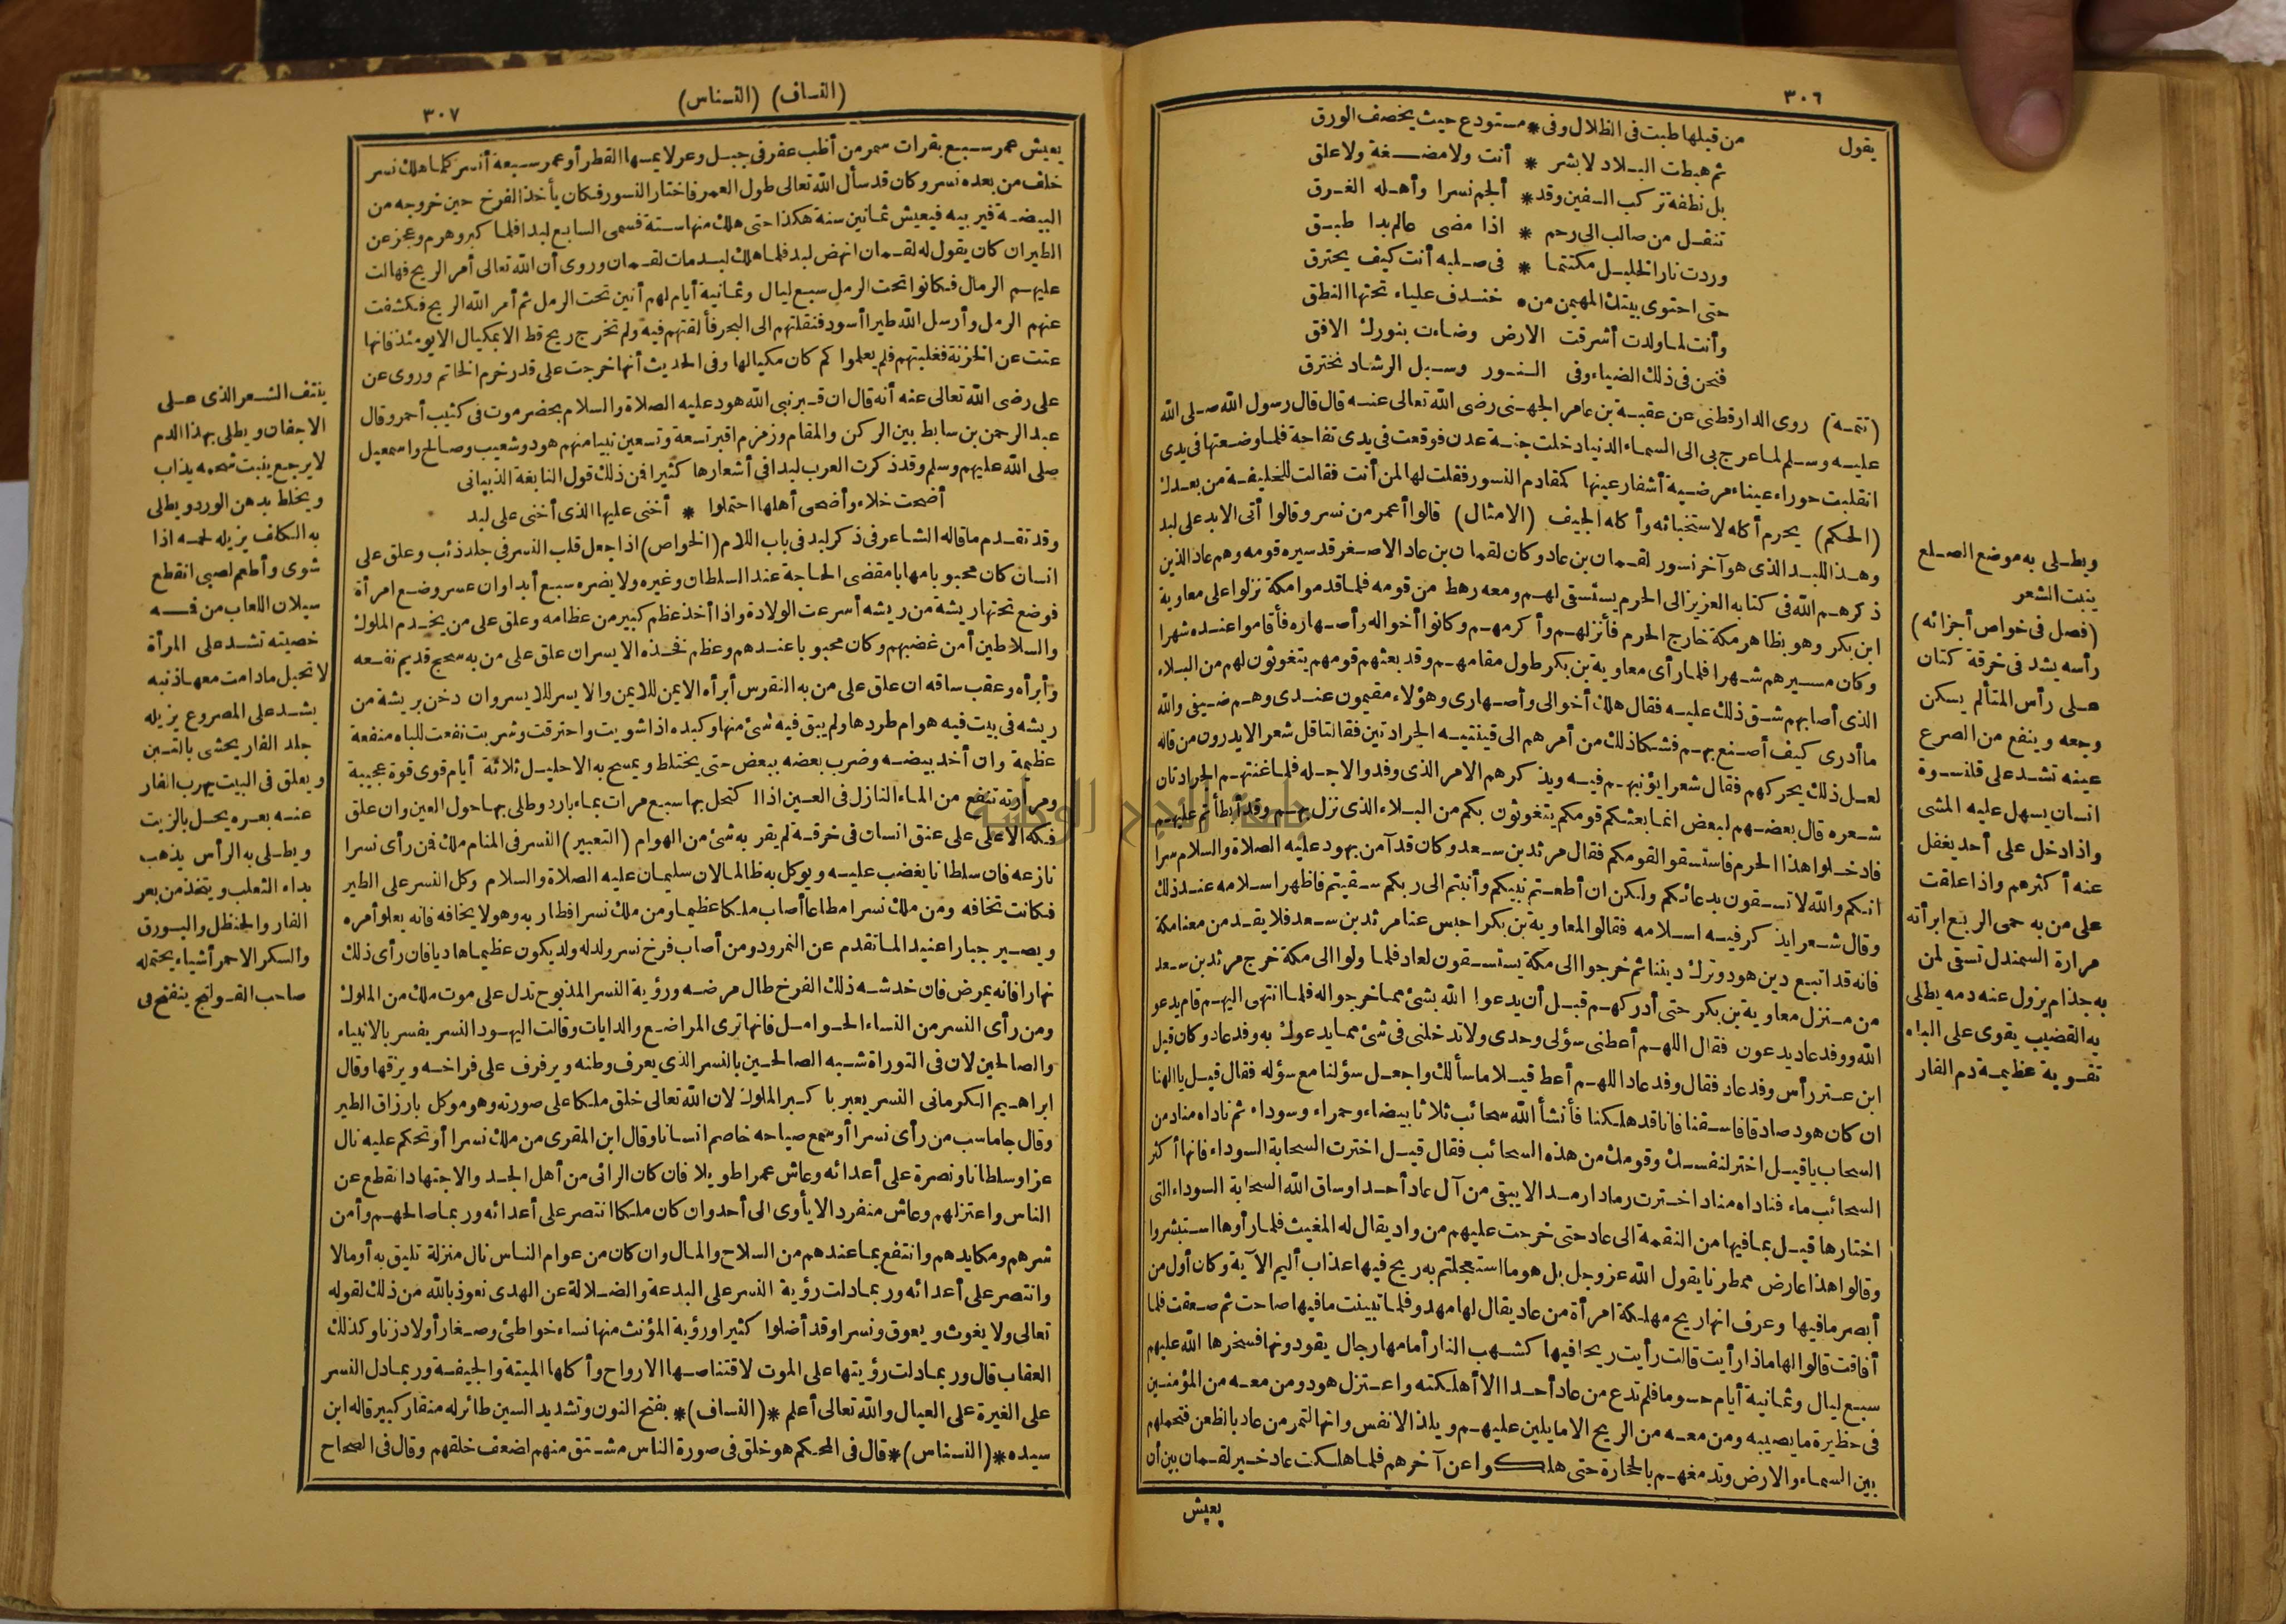 ٣٠٦
يقول
من قبلها طبت في الظلال وفي * مستودع حيث يخصف الورق
ثم هبطت البلاد لا بشر * أنت ولا مضغة ولا علق
بل نطفة تركب السفين وقد * ألجم نسرا وأهله الغرق
تنقل من صالب الى رحم * اذا مضى عالم بدا طبق
وردت نار الخليل مكتتما * في صلبه أنت كيف يحترق
حتى احتوى بيتك المهيمن من * خندف علياء تحتها النطق
وأنت لما ولدت أشرقت الارض وضاءت بنورك الافق
فنحن في ذلك الضياء وفي النور وسبل الرشاد نخترق
(تتمة) روى الدارقطني عن عقبة بن عامر الجهني رضى الله تعالى عنه قال قال رسول الله صلى الله
عليه وسلم لما عرج بي الى السماء الدنيا دخلت جنة عدن فوقعت في يدى تفاحة فلما وضعتها في يدى
انقلبت حوراء عيناء مرضية أشفار عينها كمقادم النسور فقلت لها لمن أنت فقالت للخليفة من بعدك
(الحكم) يحرم أكله لاستخبائه وأكله الجيف (الامثال) قالوا أعمر من نسر وقالوا أتى الابد على لبد
وهذا اللبد الذى هو آخر نسور لقمان بن عاد وكان لقمان بن عاد الاصغر قد سيره قومه وهم عاد الذين
ذكرهم الله في كتابه العزيز الى الحرم يستسقى لهم ومعه رهط من قومه فلما قدموا مكة نزلوا على معاوية
ابن بكر وهو بظاهر مكة خارج الحرم فأنزلهم وأكرمهم وكانوا أخواله وأصهاره فأقاموا عنده شهرا
وكان مسيرهم شهرا فلما رأى معاوية بن بكر طول مقامهم وقد بعثهم قومهم يتغوثون لهم من البلاء
الذى أصابهم شق ذلك عليه فقال هلك أخوالى وأصهارى وهؤلاء مقيمون عندى وهم ضيفى والله
ما أدرى كيف أصنع بهم فشكا ذلك من أمرهم الى قينتيه الجرادتين فقالتا قل شعرا لا يدرون من قاله
لعل ذلك يحركهم فقال شعرا يؤنبهم فيه ويذكرهم الامر الذى وفدوا لاجله فلما غنتهم الجرادتان
شعره قال بعضهم لبعض انما بعثكم قومكم يتغوثون بكم من البلاء الذى نزل بهم وقد أبطأتم عليهم
فادخلوا هذا الحرم فاستسقوا لقومكم فقال مرثد بن سعد وكان قد آمن بهود عليه الصلاة والسلام سرا
انكم والله لا تسقون بدعائكم ولكن ان أطعتم نبيكم وأنبتم الى ربكم سقيتم فاظهر اسلامه عند ذلك
وقال شعرا يذكر فيه اسلامه فقالوا لمعاوية بن بكر احبس عنا مرثد بن سعد فلا يقدمن معنا مكة
فانه قد اتبع دين هود وترك ديننا ثم خرجوا الى مكة يستسقون لعاد فلما ولوا الى مكة خرج مرثد بن سعد
من منزل معاوية بن بكر حتى أدركهم قبل أن يدعوا الله بشئ مما خرجوا له فلما انتهى اليهم قام يدعو
الله ووفد عاد يدعون فقال اللهم أعطنى سؤلى وحدى ولا تدخلنى فى شئ مما يدعوك به وفد عاد وكان قيل
ابن عتر رأس وفد عاد فقال وفد عاد اللهم أعط قيلا ما سألك واجعل سؤلنا مع سؤله فقال قيل يا الهنا
ان كان هود صادقا فاسقنا فانا قد هلكنا فأنشأ الله سحائب ثلاثا بيضاء وحمراء وسوداء ثم ناداه مناد من
السحاب يا قيل اختر لنفسك وقومك من هذه السحائب فقال قيل اخترت السحابة السوداء فانها أكثر
السحائب ماء فناداه مناد اخترت رمادا رمددا لا يبقى من آل عاد أحدا وساق الله السحابة السوداء التى
اختارها قيل بما فيها من النقمة الى عاد حتى خرجت عليهم من واد يقال له المغيث فلما رأوها استبشروا
وقالوا هذا عارض ممطرنا يقول الله عز وجل بل هو ما استعجلتم به ريح فيها عذاب أليم الآية وكان أول من
أبصر ما فيها وعرف انها ريح مهلكة امرأة من عاد يقال لها مهدو فلما تبينت ما فيها صاحت ثم صعقت فلما
أفاقت قالوا لها ماذا رأيت قالت رأيت ريحا فيها كشهب النار أمامها رجال يقودونها فسخرها الله عليهم
سبع ليال وثمانية أيام حسوما فلم تدع من عاد أحدا الا أهلكته واعتزل هود ومن معه من المؤمنين
فى حظيرة ما يصيبه ومن معه من الريح الا ما يلين عليهم ويلذ الانفس وانها لتمر من عاد بالظعن فتحملهم
بين السماء والارض وتدمغهم بالحجارة حتى هلكوا عن آخرهم فلما هلكت عاد خير لقمان بين أن
يعيش
ويطلى به موضع الصلع
ينبت الشعر
(فصل فى خواص أجزائه)
رأسه يشد فى خرقة كتان
على رأس المتألم يسكن
وجعه وينفع من الصرع
عينه تشد على قلنسوة
انسان يسهل عليه المشى
واذا دخل على أحد يغفل
عنه أكثرهم واذا علقت
على من به حمى الربع ابرأته
مرارة السمندل تسقى لمن
به جذام يزول عنه دمه يطلى
به القضيب يقوى على الباه
تقوية عظيمة دم الفار
(النساف) (النسناس)
٣٠٧
يعيش عمر سبع بقرات سمر من أظب عفر فى جبل وعر لا يمسها القطر أو عمر سبعة أنسر كلما هلك نسر
خلف من بعده نسر وكان قد سأل الله تعالى طول العمر فاختار النسور فكان يأخذ الفرخ حين خروجه من
البيضة فيربيه فيعيش ثمانين سنة هكذا حتى هلك منها ستة فسمى السابع لبدا فلما كبر وهرم وعجز عن
الطيران كان يقول له لقمان انهض لبد فلما هلك لبد مات لقمان وروى أن الله تعالى أمر الريح فهالت
عليهم الرمال فكانوا تحت الرمل سبع ليال وثمانية أيام لهم أنين تحت الرمل ثم أمر الله الريح فكشفت
عنهم الرمل وأرسل الله طيرا أسود فنقلتهم الى البحر فألقتهم فيه ولم تخرج ريح قط الا بمكيال الا يومئذ فانها
عتت عن الخزنة فغلبتهم فلم يعلموا كم كان مكيالها وفى الحديث أنها خرجت على قدر خرم الخاتم وروى عن
على رضى الله تعالى عنه أنه قال ان قبر نبى الله هود عليه الصلاة والسلام بحضرموت فى كثيب أحمر وقال
عبد الرحمن بن سابط بين الركن والمقام وزمزم اقبر تسعة وتسعين نبيا منهم هود وشعيب وصالح واسمعيل
صلى الله عليهم وسلم وقد ذكرت العرب لبدا فى أشعارها كثيرا فن ذلك قول النابغة الذبيانى
أضحت خلاء وأضحى أهلها احتملوا * أخنى عليها الذى أخنى على لبد
وقد تقدم ما قاله الشاعر فى ذكر لبد فى باب اللام (الخواص) اذا جعل قلب النسر فى جلد ذئب وعلق على
انسان كان محبوبا مهابا مقضى الحاجة عند السلطان وغيره ولا يضره سبع أبدا وان عسر وضع امرأة
فوضع تحتها ريشة من ريشه أسرعت الولادة واذا أخذ عظم كبير من عظامه وعلق على من يخدم الملوك
والسلاطين أمن غضبهم وكان محبوبا عندهم وعظم فخذه الايسر ان علق على من به سحج قديم نفعه
وأبرأه وعقب ساقه ان علق على من به النقرس أبرأه الايمن للايمن والايسر للايسر وان دخن بريشة من
ريشه فى بيت فيه هوام طردها ولم يبق فيه شئ منها وكبده اذا شويت واحترقت وشربت نفعت للباه منفعة
عظيمة وان أخذ بيضه وضرب بعضه ببعض حتى يختلط ويمسح به الاحليل ثلاثة أيام قوى قوة عجيبة
ومرارته تنفع من الماء النازل فى العين اذا اكتحل بها سبع مرات بماء بارد وطلى بها حول العين وان علق
فكه الاعلى على عنق انسان فى خرقة لم يقربه شئ من الهوام (التعبير) النسر فى المنام ملك فن رأى نسرا
نازعه فان سلطانا يغضب عليه ويوكل به ظالما لان سليمان عليه الصلاة والسلام وكل النسر على الطير
فكانت تخافه ومن ملك نسرا مطاعا أصاب ملكا عظيما ومن ملك نسرا فطار به وهو لا يخافه فانه يعلو أمره
ويصير جبارا عنيدا لما تقدم عن النمرود ومن أصاب فرخ نسر ولد له ولد يكون عظيما هاديا فان رأى ذلك
نهارا فانه يمرض فان خدشه ذلك الفرخ طال مرضه ورؤية النسر المذبوح تدل على موت ملك من الملوك
ومن رأى النسر من النساء الحوامل فانها ترى المراضع والدايات وقالت اليهود النسر يفسر بالانبياء
والصالحين لان فى التوراة شبه الصالحين بالنسر الذى يعرف وطنه ويرفرف على فراخه ويزقها وقال
ابراهيم الكرمانى النسر يعبر باكبر الملوك لان الله تعالى خلق ملكا على صورته وهو موكل بارزاق الطير
وقال جاماسب من رأى نسرا أو سمع صياحه خاصم انسانا وقال ابن المقرى من ملك نسرا أو تحكم عليه نال
عزا وسلطانا ونصرة على أعدائه وعاش عمرا طويلا فان كان الرائى من أهل الجد والاجتهاد انقطع عن
الناس واعتزلهم وعاش منفردا لا يأوى الى أحد وان كان ملكا انتصر على أعدائه وربما صالحهم وأمن
شرهم ومكايدهم وانتفع بما عندهم من السلاح والمال وان كان من عوام الناس نال منزلة تليق به أو مالا
وانتصر على أعدائه وربما دلت رؤية النسر على البدعة والضلالة عن الهدى نعوذ بالله من ذلك لقوله
تعالى ولا يغوث ويعوق ونسرا وقد أضلوا كثيرا ورؤية المؤنث منها نساء خواطئ وصغار أولاد زنا وكذلك
العقاب قال وربما دلت رؤيتها على الموت لاقتناصها الارواح وأكلها الميتة والجيفة وربما دل النسر
على الغيرة على العيال والله تعالى أعلم *(النساف)* بفتح النون وتشديد السين طائر له منقار كبير قاله ابن
سيده *(النسناس)* قال فى المحكم هو خلق فى صورة الناس مشتق منهم اضعف خلقهم وقال فى الصحاح
ينتف الشعر الذى على
الاجفان ويطلى بهذا الدم
لا يرجع ينبت شحمه يذاب
ويخلط بدهن الورد ويطلى
به الكلف يزيله لحمه اذا
شوى وأطعم لصبى انقطع
سيلان اللعاب من فمه
خصيته تشد على المرأة
لا تحبل ما دامت معها ذنبه
يشد على المصروع يزيله
جلد الفار يحشى بالتبن
ويعلق فى البيت يهرب الفار
عنه بعره يحل بالزيت
ويطلى به الرأس يذهب
بداء الثعلب ويتخذ من بعر
الفار والحنظل والبورق
والسكر الاحمر أشياء يحتمله
صاحب القولنج ينفتح فى
جامعة النجاح الوطنية